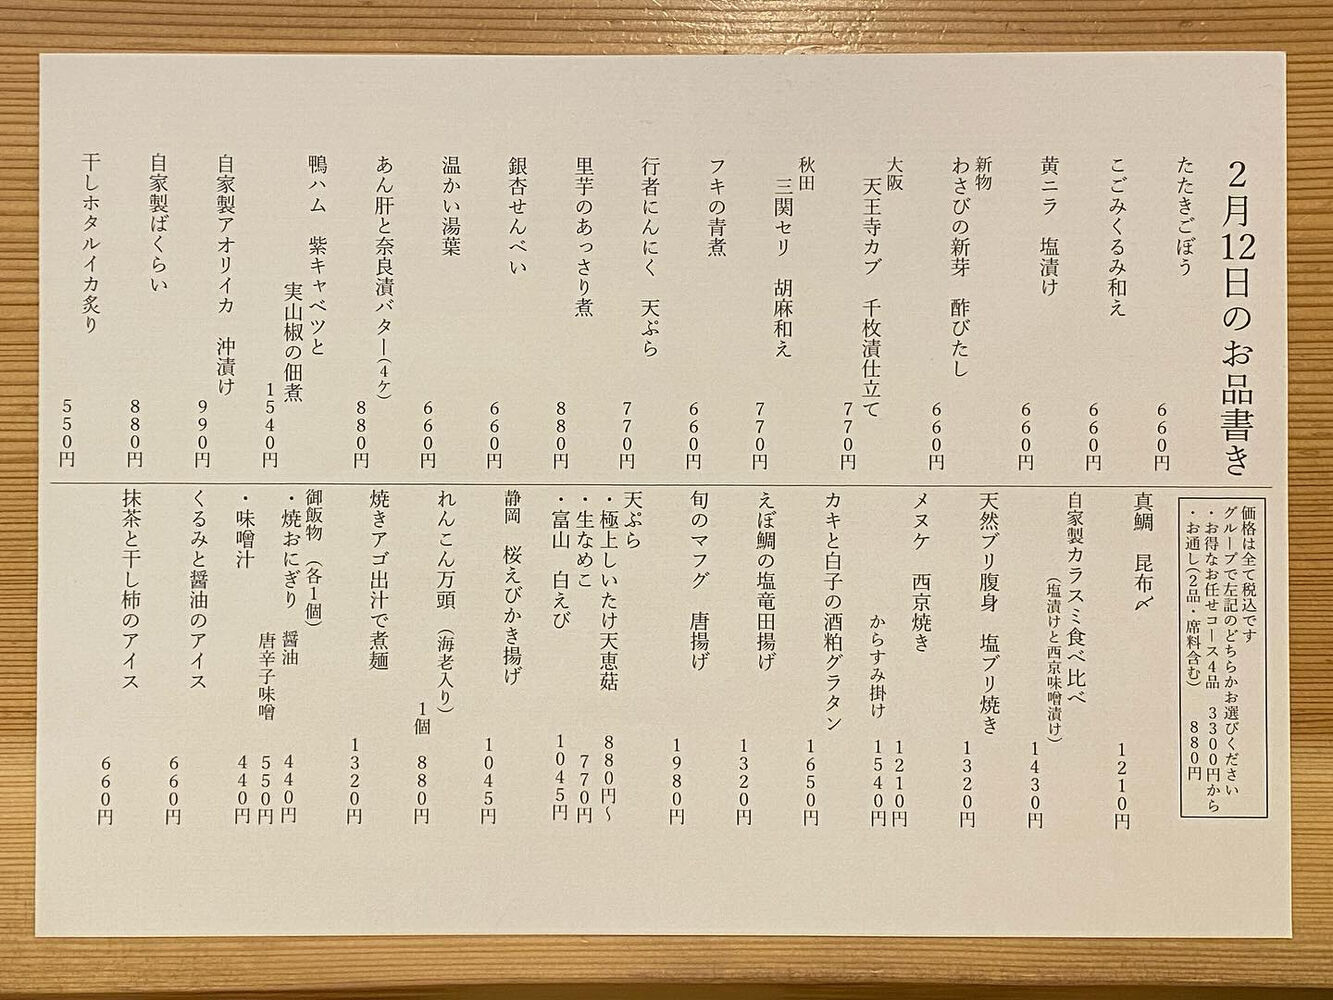 2月12日のお品書き
たたきごぼう 660円
こごみくるみ和え 660円
黄ニラ 塩漬け 660円
新物
わさびの新芽 酢びたし 660円
大阪
天王寺カブ 千枚漬仕立て 770円
秋田
三関セリ 胡麻和え 770円
フキの青煮 660円
行者にんにく 天ぷら 770円
里芋のあっさり煮 880円
銀杏せんべい 660円
温かい湯葉 660円
あん肝と奈良漬バター(4ケ) 880円
鴨ハム 紫キャベツと
実山椒の佃煮 1540円
自家製アオリイカ 沖漬け 990円
自家製ばくらい 880円
干しホタルイカ炙り 550円
価格は全て税込です
グループで左記のどちらかお選びください
・お得なお任せコース4品 3300円から
・お通し(2品・席料含む) 880円
真鯛 昆布〆 1210円
自家製カラスミ食べ比べ
(塩漬けと西京味噌漬け) 1430円
天然ブリ腹身 塩ブリ焼き 1320円
メヌケ 西京焼き 1210円
からすみ掛け 1540円
カキと白子の酒粕グラタン 1650円
えぼ鯛の塩竜田揚げ 1320円
旬のマフグ 唐揚げ 1980円
天ぷら
・極上しいたけ天恵菇 880円〜
・生なめこ 770円
・富山 白えび 1045円
静岡 桜えびかき揚げ 1045円
れんこん万頭 (海老入り)
1個 880円
焼きアゴ出汁で煮麺 1320円
御飯物 (各1個)
・焼おにぎり 醤油 440円
唐辛子味噌 550円
・味噌汁 440円
くるみと醤油のアイス 660円
抹茶と干し柿のアイス 660円